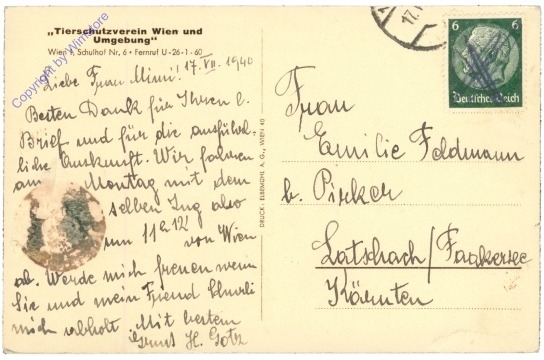 „Tierschutzverein Wien und
Umgebung“
Wien I, Schulhof Nr. 6 • Fernruf U-26-1-60
17. VII. 1940
Liebe Frau Mimi!
Besten Dank für Ihren l.
Brief und für die ausführ-
liche Auskunft. Wir fahren
am Montag mit dem
selben Zug also
um 11 12 von Wien
ab. Werde mich freuen wenn
Sie und mein Freund
mich abholt. Mit bestem
H. Götz
DRUCK: ELBEMÜHL A. G., WIEN 40
17.
6 6
Deutsches Reich
Frau
Emilie Feldmann
b. Pirker
Latschach/Faakersee
Kärnten
Copyright by Winstore